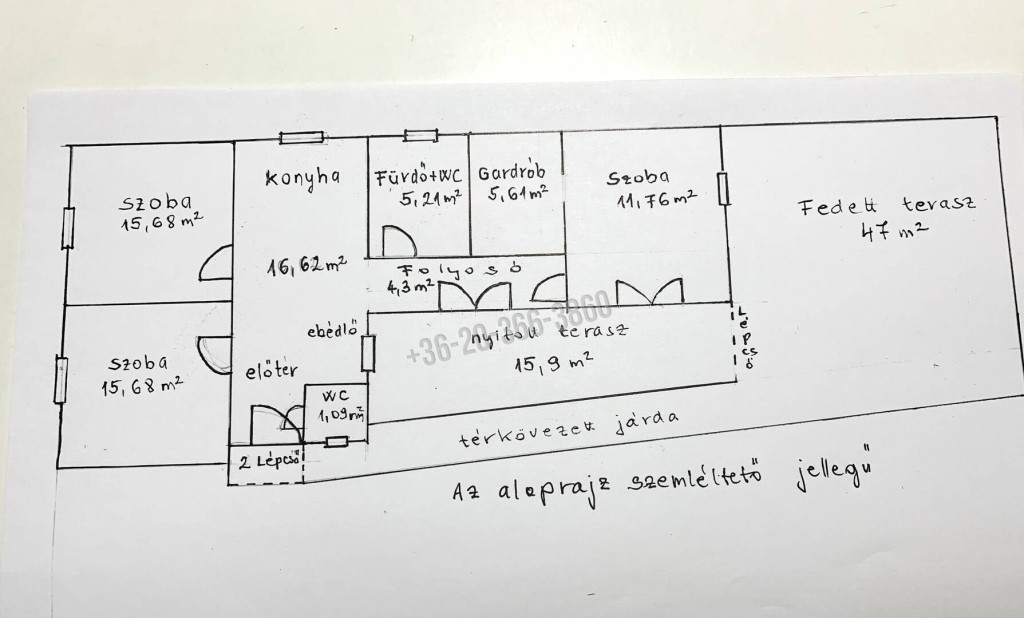 szoba
15,68 m²
konyha
16,62 m²
Fürdő+WC
5,21 m²
Gardrób
5,61 m²
Szoba
11,76 m²
Fedett terasz
47 m²
Folyosó
4,3 m²
szoba
15,68 m²
előtér
ebédlő
WC
1,09 m²
nyitott terasz
15,9 m²
Lépcső
+36-20-366-3860
2 Lépcső
térkövezett járda
Az alaprajz szemléltető jellegű